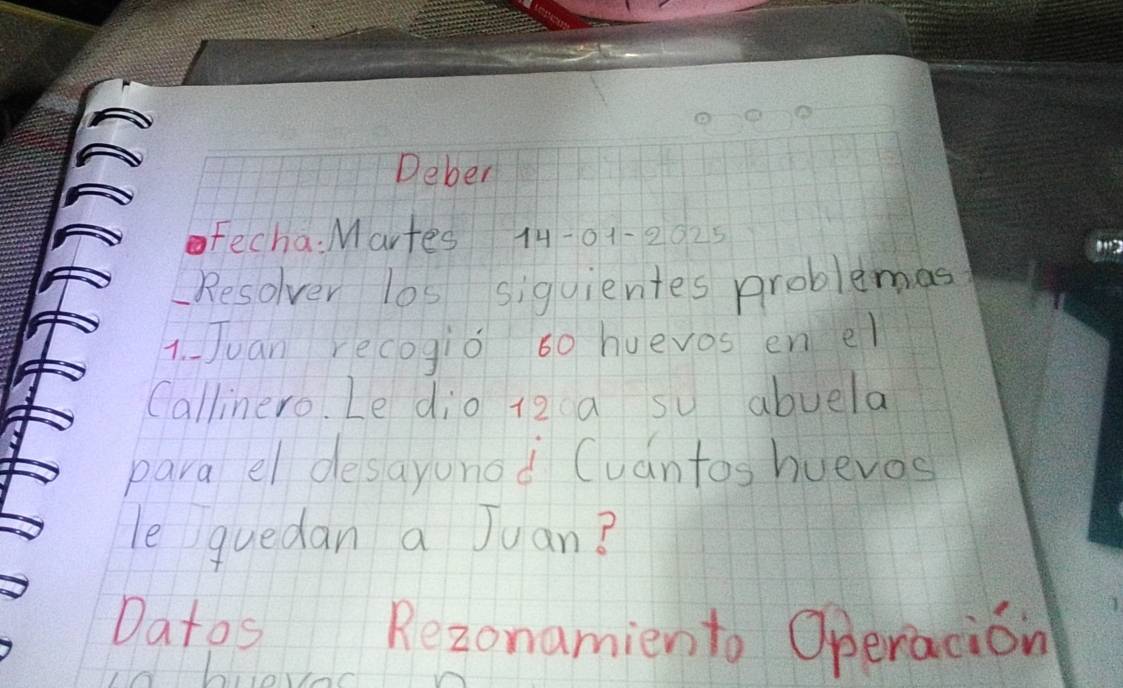 Deber
Fecha: Martes 14-01-2025
- Resolver los siguientes problemas
1.- Juan recogió 60 huevos en el
Callinero. Le dio 12 a su abuela
para el desayuno ¿ Cuántos huevos
le quedan a Juan?
Datos Rezonamiento Operación
huevos